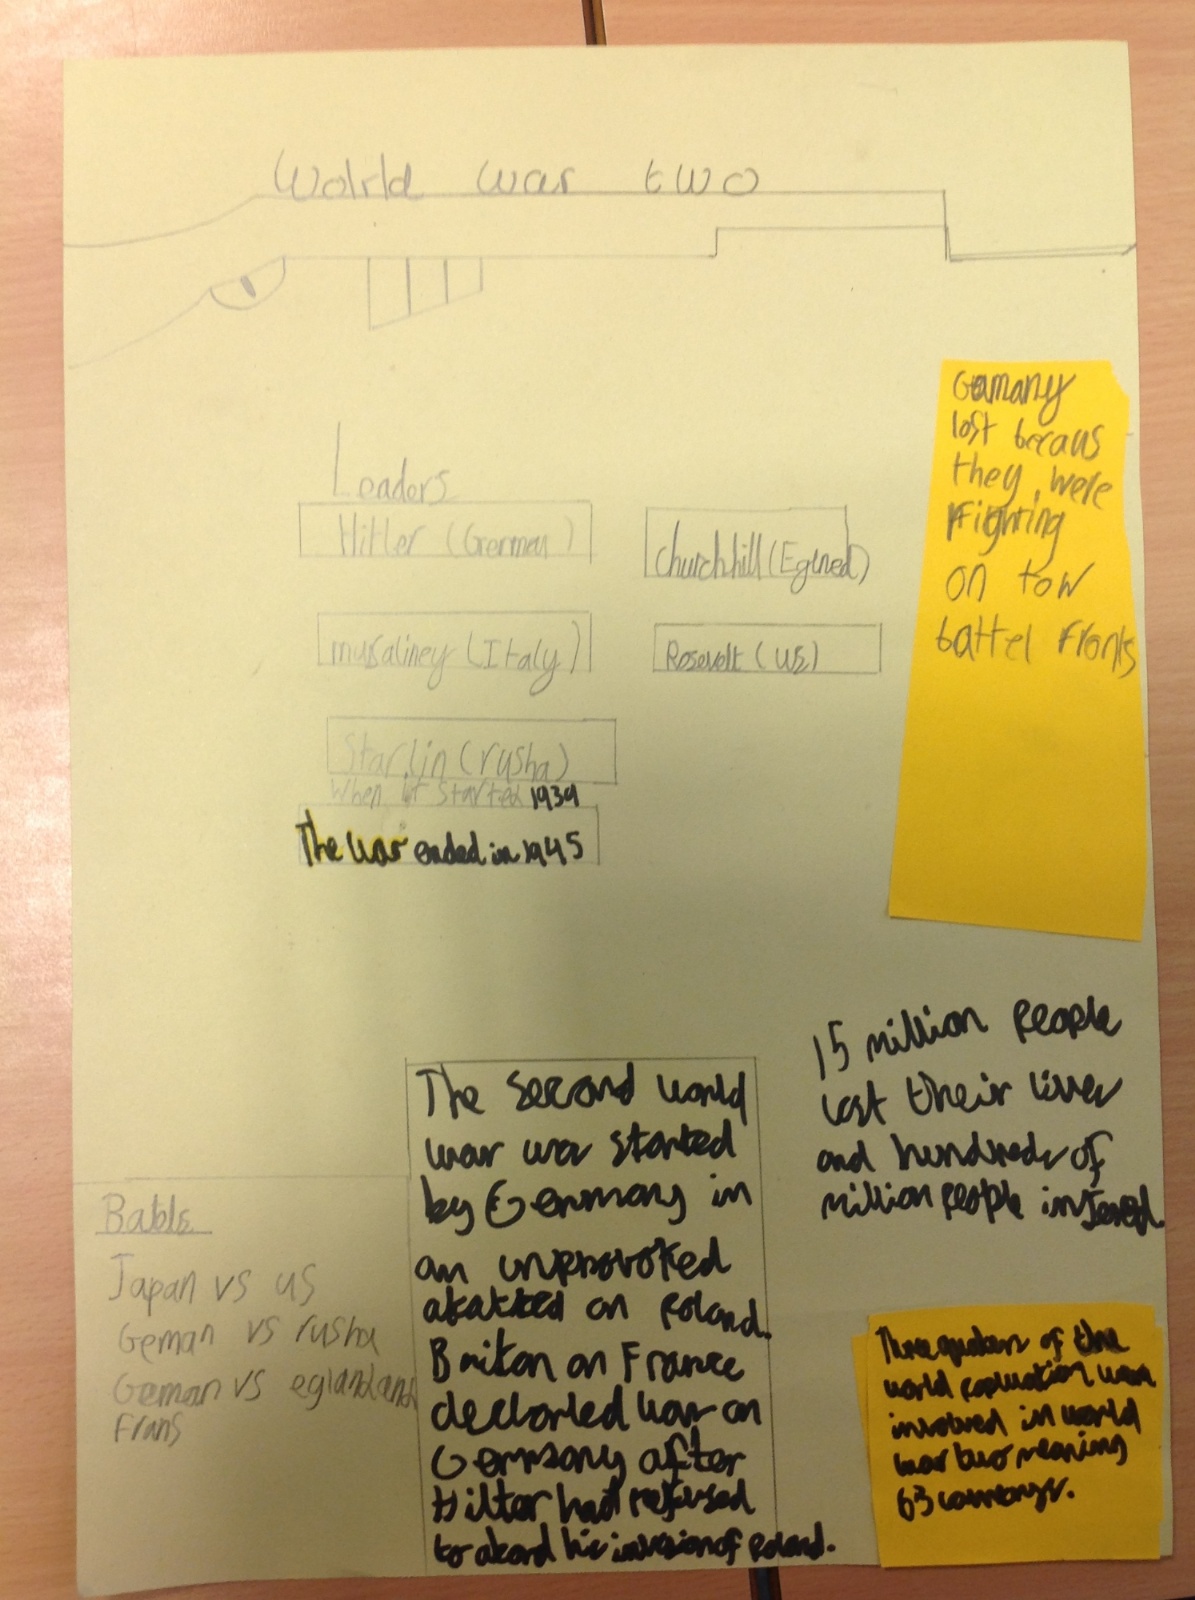 World war two
Leaders
Hitler (German)
Churchhill (Eglned)
musaliney (Italy)
Rosevelt (US)
Starlin (rusha)
When it started 1939
The war ended in 1945
Gemany
lost becaus
they were
Fighting
on tow
battel fronts
15 million people
lost their lives
and hundreds of
million people injered.
Batble
Japan vs US
Geman vs rusha
Geman vs eglandand
Frans
The second world
war was started
by Germany in
an unprovoked
atakked on Poland.
Briton an France
declorled war on
Germany after
Hiltar had refused
to abord his invasion of Poland.
Three quaters of the
world population were
involved in world
war two meaning
63